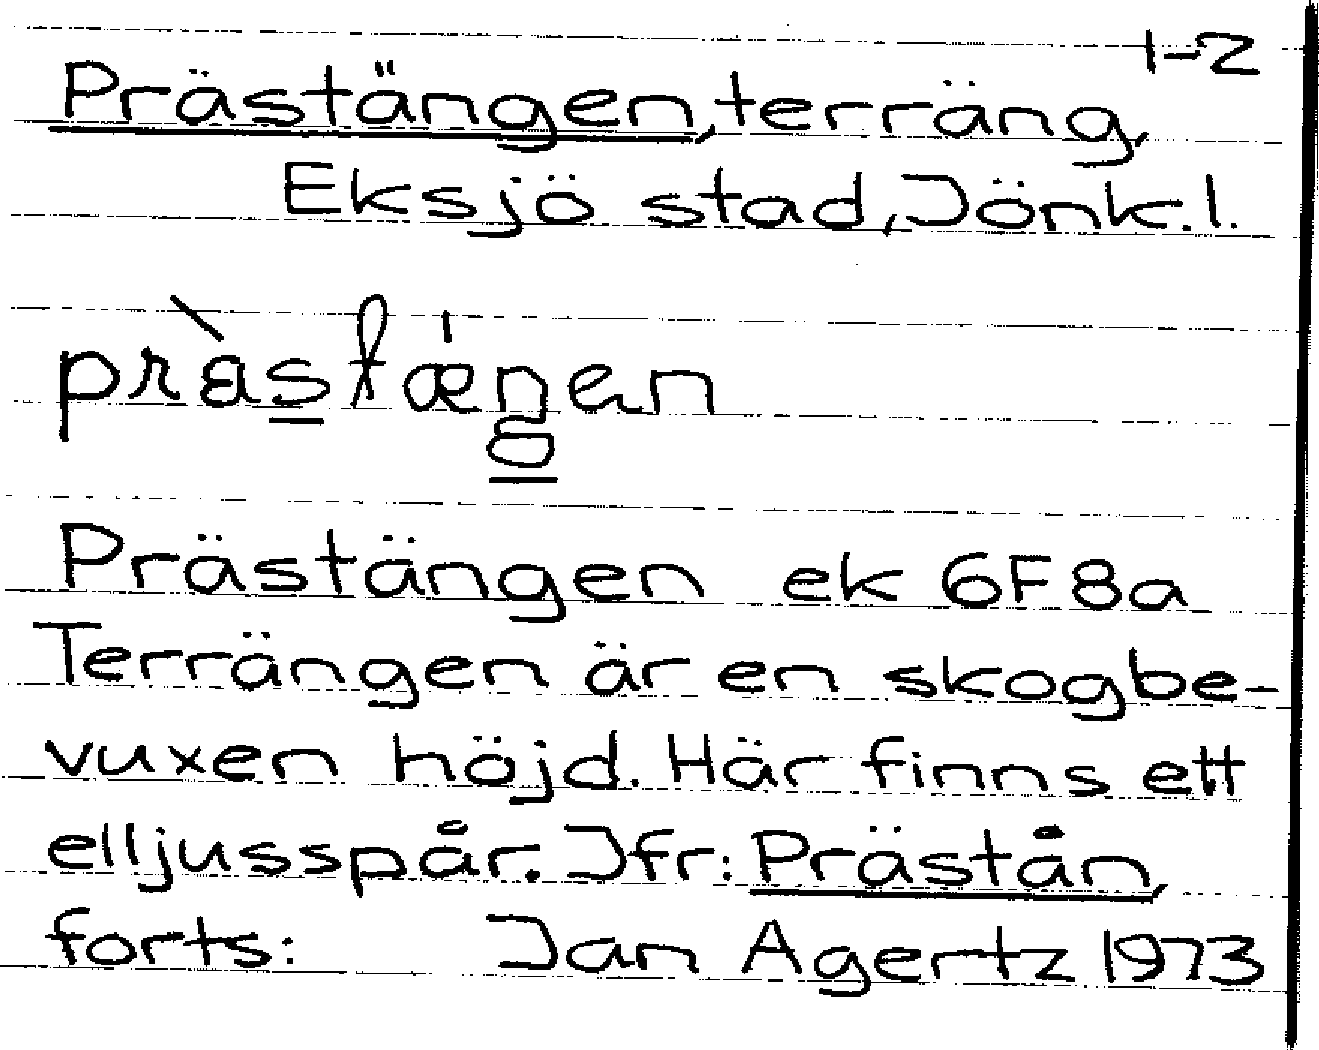 1-2
Prästängen, terräng,
Eksjö stad, Jönk. l.
Prästängen ek 6F8a
Terrängen är en skogbe-
vuxen höjd. Här finns ett
elljusspår. Jfr: Prästån,
forts: Jan Agertz 1973